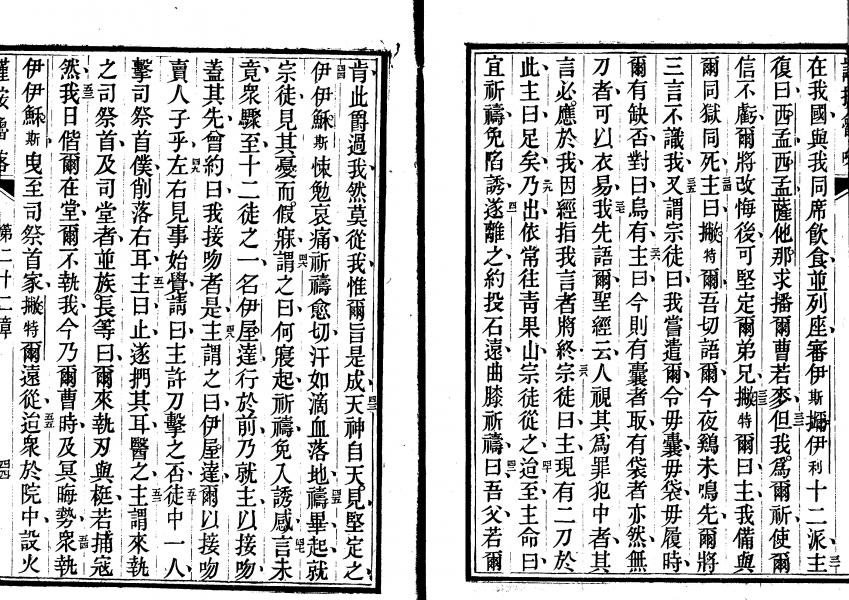 在我國與我同席飲食並列座審伊斯𠹌伊利十二派主
復曰西孟西孟薩他那求播爾曹若麥但我為爾祈使爾
信不虧爾將改悔後可堅定爾弟兄撇特爾曰主我備與
爾同獄同死主曰撇特爾吾切語爾今夜鷄未鳴先爾將
三言不識我又謂宗徒曰我嘗遣爾毋囊毋袋毋履時
爾有缺否對曰烏有主曰今則有囊者取有袋者亦然無
刀者可以衣易我先語爾聖經云人視其為罪犯中者其
言必應於我因經指我言者將終宗徒曰主現有二刀於
此主曰足矣乃出依常往青果山宗徒從之迨至主命曰
宜祈禱免陷誘遂離之約投石遠曲膝祈禱曰吾父若爾
肯此爵過我然莫從我惟爾旨是成天神自天見堅定之
伊伊穌斯悚勉哀痛祈禱愈切汗如滴血落地禱畢起就
宗徒見其憂而假寐謂之曰何寢起祈禱免入誘惑言未
竟衆驟至十二徒之一名伊屋達行於前乃就主以接吻
蓋其先曾約曰我接吻者是主謂之曰伊屋達爾以接吻
賣人子乎左右見事始覺請曰主許刀擊之否徒中一人
擊司祭首僕削落右耳主曰止遂捫其耳醫之主謂來執
之司祭首及司堂者並族長等曰爾來執刃與梃若捕寇
然我日偕爾在堂爾不執我今乃爾曹時及冥晦勢衆執
伊伊穌斯曳至司祭首家撇特爾遠從迨衆於院中設火
第二十二章